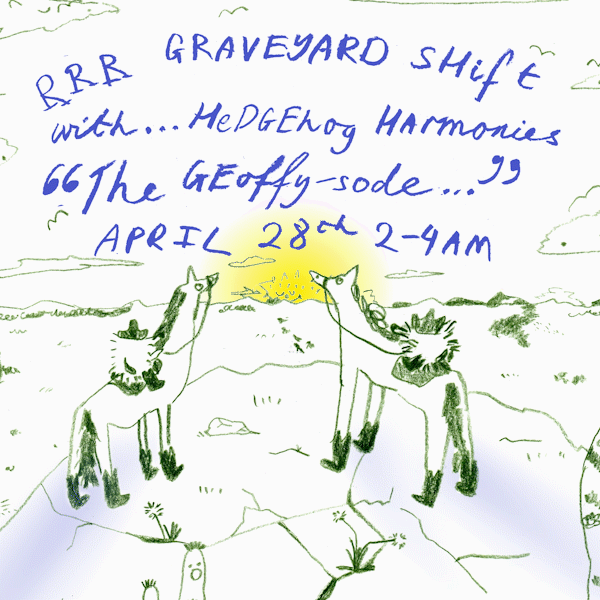 RRR GRAVEYARD SHifT
with... HeDGEhog HArmonies
“The GEoffy-sode...”
APRIL 28th 2-4AM